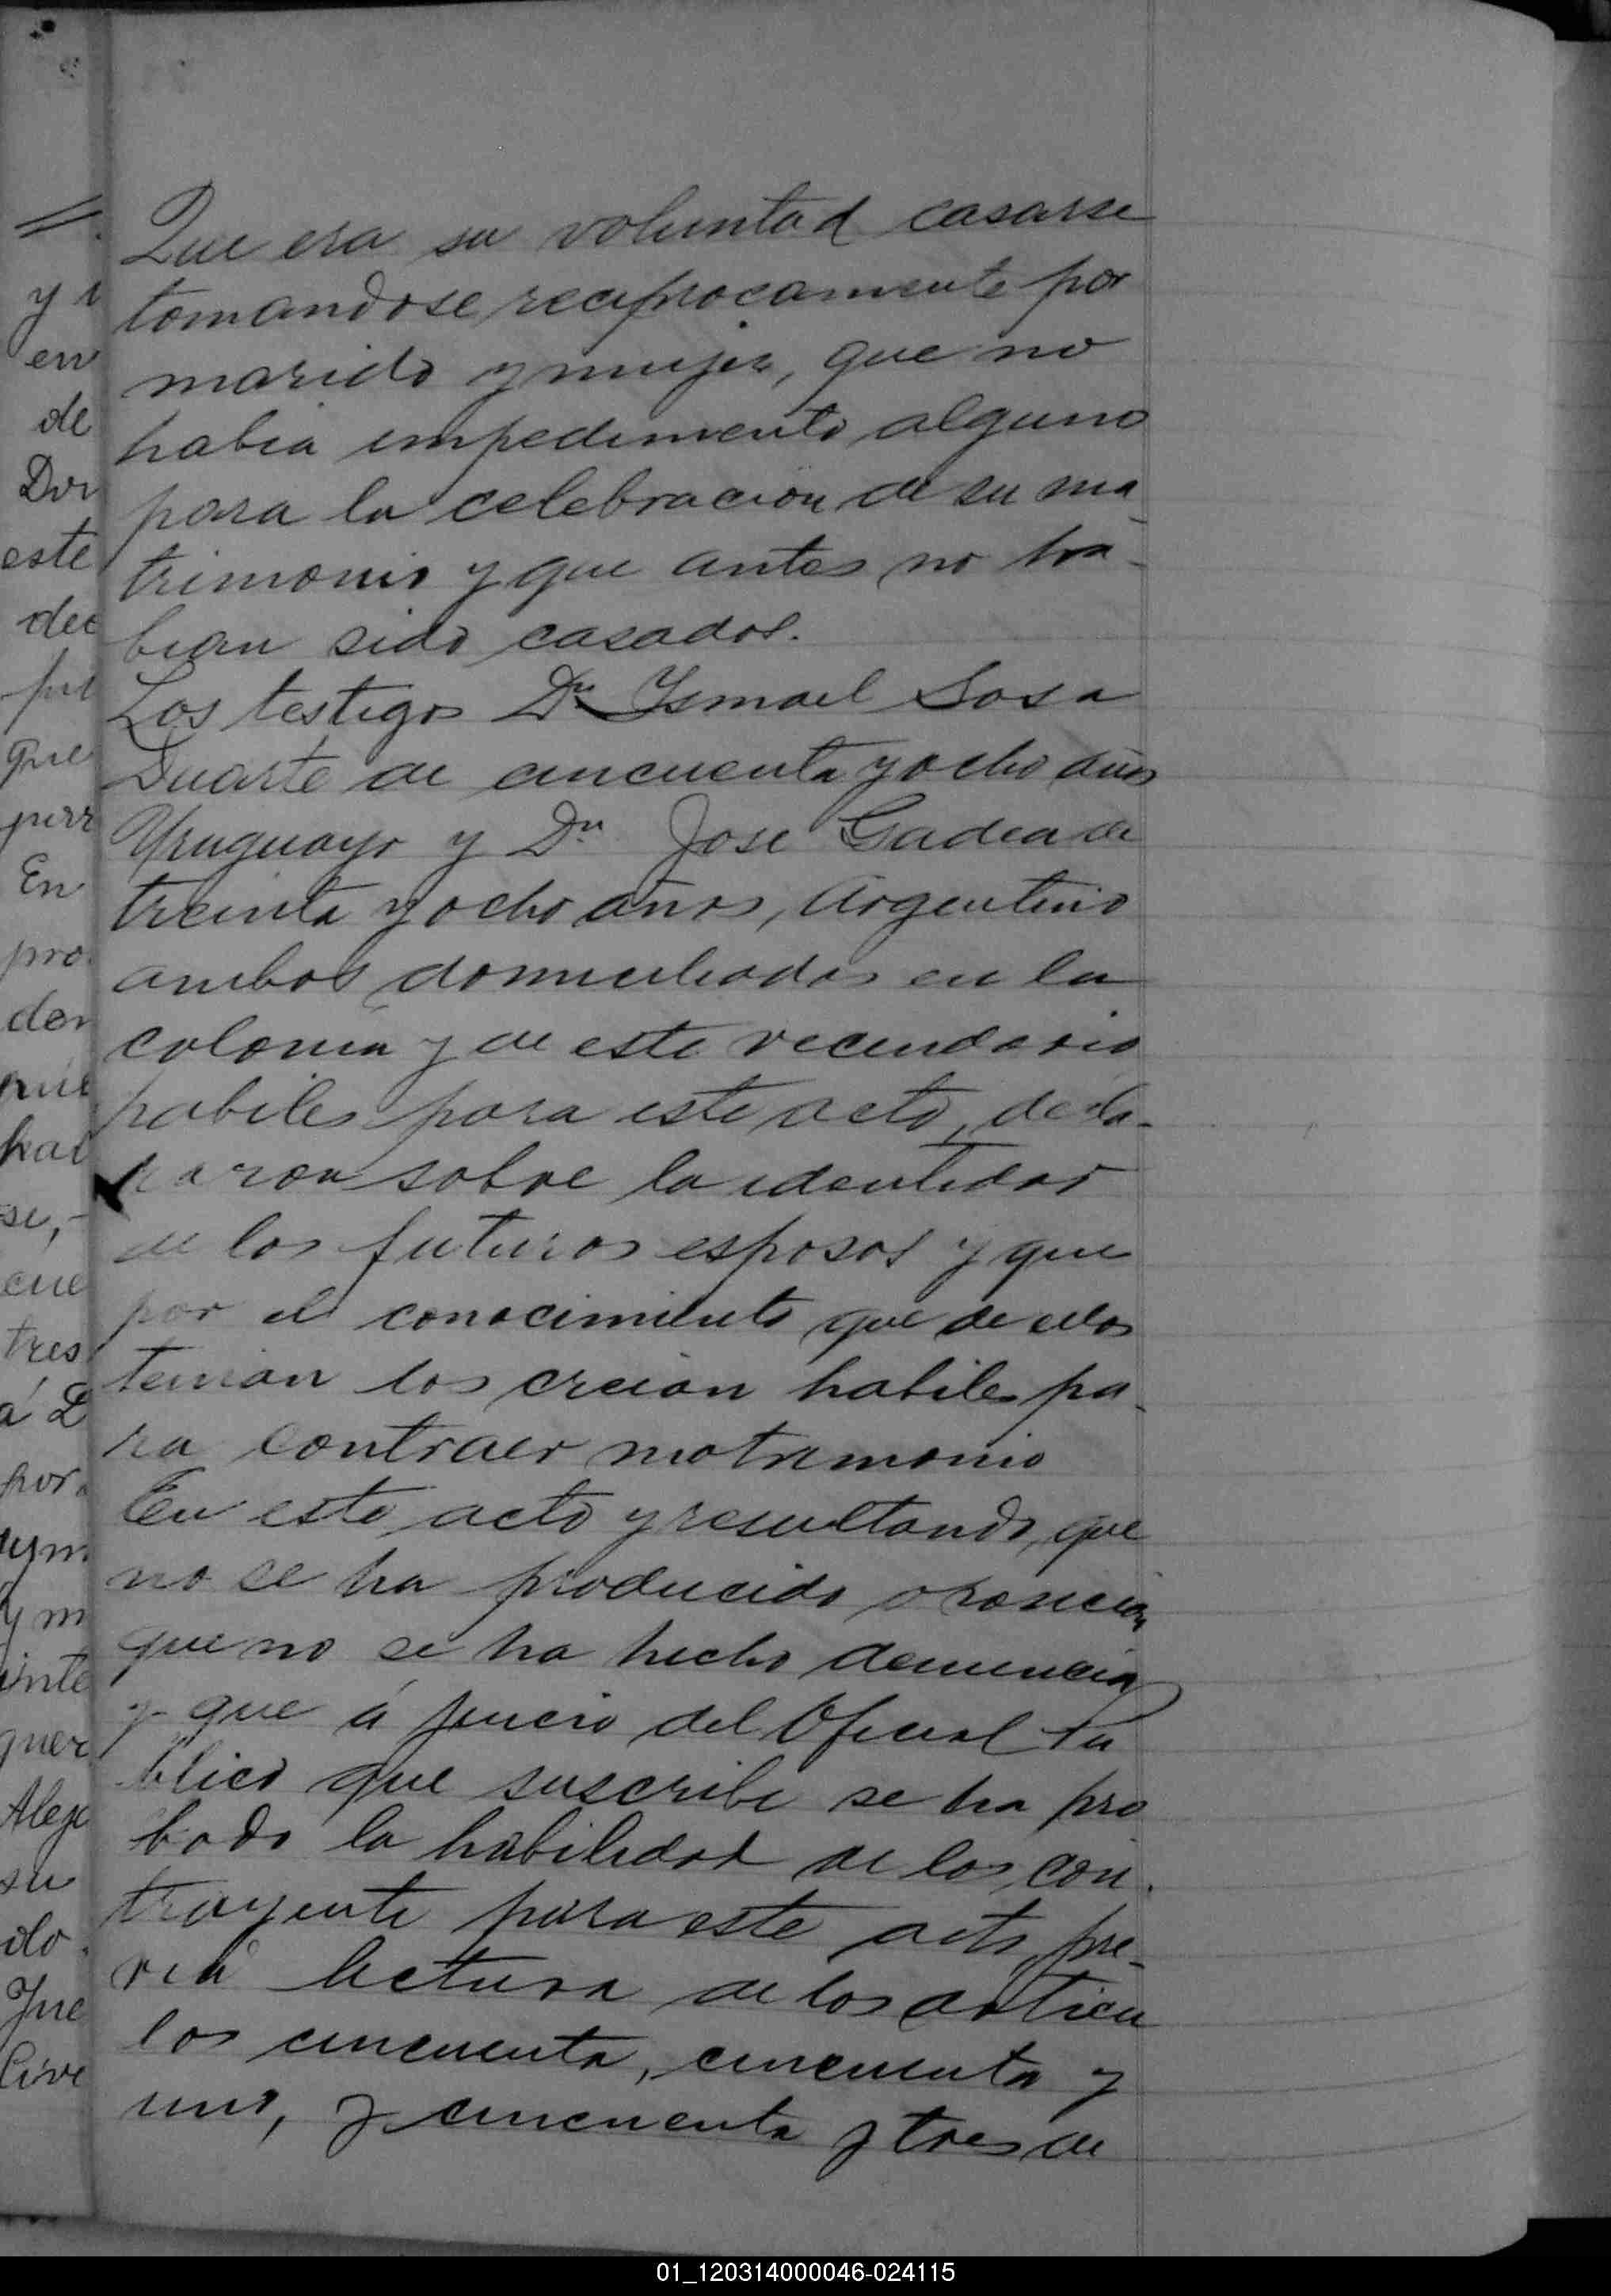 Que era su voluntad casarse
tomandose reciprocamente por
marido y mujer, que no
habia impedimento alguno
para la celebracion de su ma-
trimonio y que antes no ha-
bian sido casados.
Los testigos Dn Ismael Sosa
Duarte de cincuenta y ocho años
Uruguayo y Dn Jose Gadea de
treinta y ocho años, Argentino
ambos domiciliados en la
colonia y de este vecindario
habiles para este acto, decla-
raron sobre la identidad
de los futuros esposos y que
por el conocimiento que de ellos
tenian los creian habiles pa-
ra contraer matrimonio
En este acto y resultando, que
no se ha producido oposicion
que no se ha hecho denuncia
y que á juicio del Oficial Pu
blico que suscribe se ha pro
bado la habilidad de los con-
trayente para este acto, pre-
via lectura de los articu
los cincuenta, cincuenta y
uno, y cincuenta y tres de
01_120314000046-024115